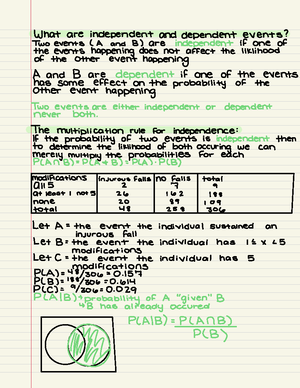 What are independent and dependent events?
Two events (A and B) are independent if one of
the events happening does not affect the liklihood
of the other event happening
A and B are dependent if one of the events
has some effect on the probability of the
other event happening
Two events are either independent or dependent
never both.
The multiplication rule for independence:
If the probability of two events is independent then
to determine the liklihood of both occuring we can
merely multiply the probabilities for each
P(A∩B) = P(A+B) = P(A)·P(B)
modifications injurous falls no falls total
all 5 2 7 9
at least 1 not 5 26 162 188
none 20 89 109
total 48 258 306
Let A = the event the individual sustained an
injurous fall
Let B = the event the individual has 1≤ x <5
modifications
Let C = the event the individual has 5
modifications
P(A) = 48/306 = 0.157
P(B) = 188/306 = 0.614
P(C) = 9/306 = 0.029
P(A|B) → probability of A "given" B
↳B has already occurred
P(A|B) = P(A∩B)
P(B)